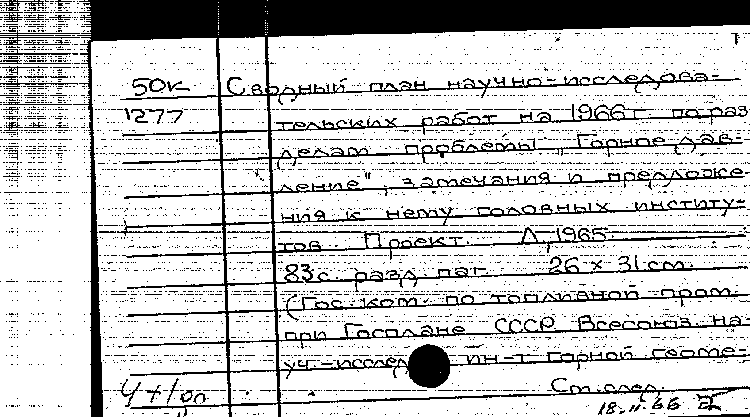 50К Сводный план научно-исследова-
1277 тельских работ на 1966 г. по раз
делам проблемы „Горное дав-
ление", замечания и предложе-
ния к нему головных институ-
тов. Проект. Л, 1965.
83с. разд. паг. 26 × 31 см.
(Гос. ком. по топливной пром.
при Госплане СССР. Всесоюз. на-
уч.-исслед. ин-т горной геоме-
См. след.
18.II.66